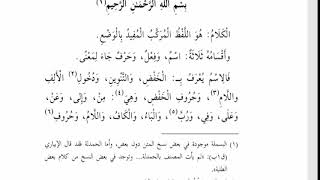 بِسْمِ اللَّهِ الرَّحْمَنِ الرَّحِيمِ(١)
الْكَلَامُ: هُوَ اللَّفْظُ الْمُرَكَّبُ الْمُفِيدُ بِالْوَضْعِ.
وَأَقْسَامُهُ ثَلَاثَةٌ: اسْمٌ، وَفِعْلٌ، وَحَرْفٌ جَاءَ لِمَعْنًى.
فَالِاسْمُ يُعْرَفُ بِـ: الْخَفْضِ، وَالتَّنْوِينِ، وَدُخُولِ(٢) الْأَلِفِ
وَاللَّامِ(٣)، وَحُرُوفِ الْخَفْضِ، وَهِيَ(٤): مِنْ، وَإِلَى، وَعَنْ،
وَعَلَى، وَفِي، وَرُبَّ(٥)، وَالْبَاءُ، وَالْكَافُ، وَاللَّامُ، وَحُرُوفِ(٦)
(١) البسملة موجودة في بعض نسخ المتن دون بعض، وأما الحمدلة فقد قال الإبياري
(ق١ب): «لم يأت المصنف بالحمدلة... وتوجد في بعض النسخ من كلام بعض
الطلبة».